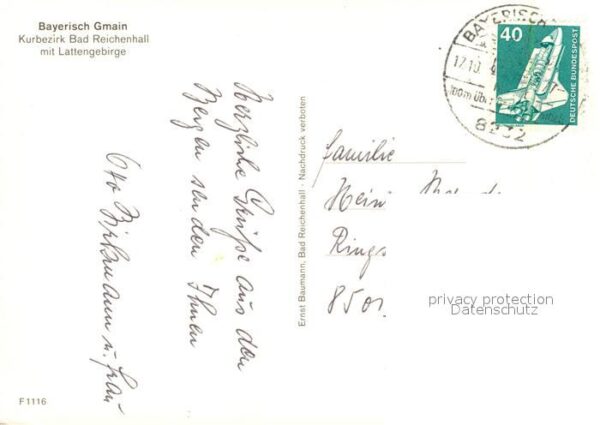 Bayerisch Gmain
Kurbezirk Bad Reichenhall
mit Lattengebirge
Herzliche Grüße aus den
Bergen senden Ihnen
Otto u. Frau
Ernst Baumann, Bad Reichenhall - Nachdruck verboten
BAYERISCH
17.10.
8232
40
DEUTSCHE BUNDESPOST
Familie
Heini
Rings
850
privacy protection
Datenschutz
F 1116